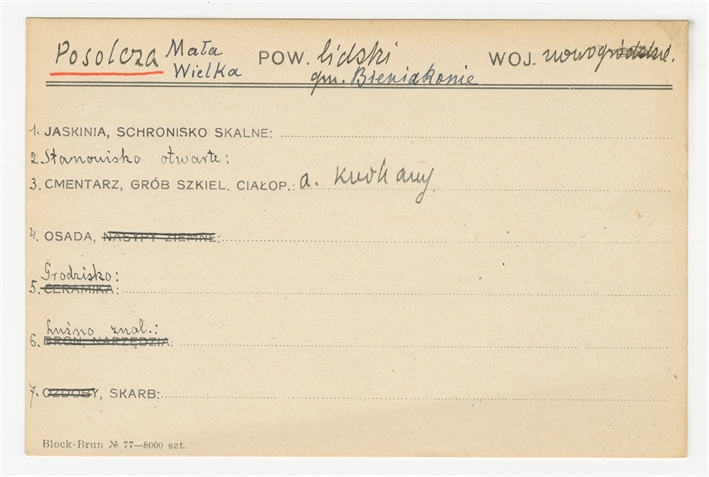 Posolcza Mała POW. lidski WOJ. nowogródzkie.
Wielka gm. Bieniakonie
1. JASKINIA, SCHRONISKO SKALNE:
2. Stanowisko otwarte:
3. CMENTARZ, GRÓB SZKIEL. CIAŁOP.: a. kurhany
4. OSADA, NASYPY ZIEMNE:
Grodzisko:
5. CERAMIKA:
Luźno znal.:
6. BROŃ, NARZĘDZIA:
7. OZDOBY, SKARB:
Block-Brun № 77—8000 szt.